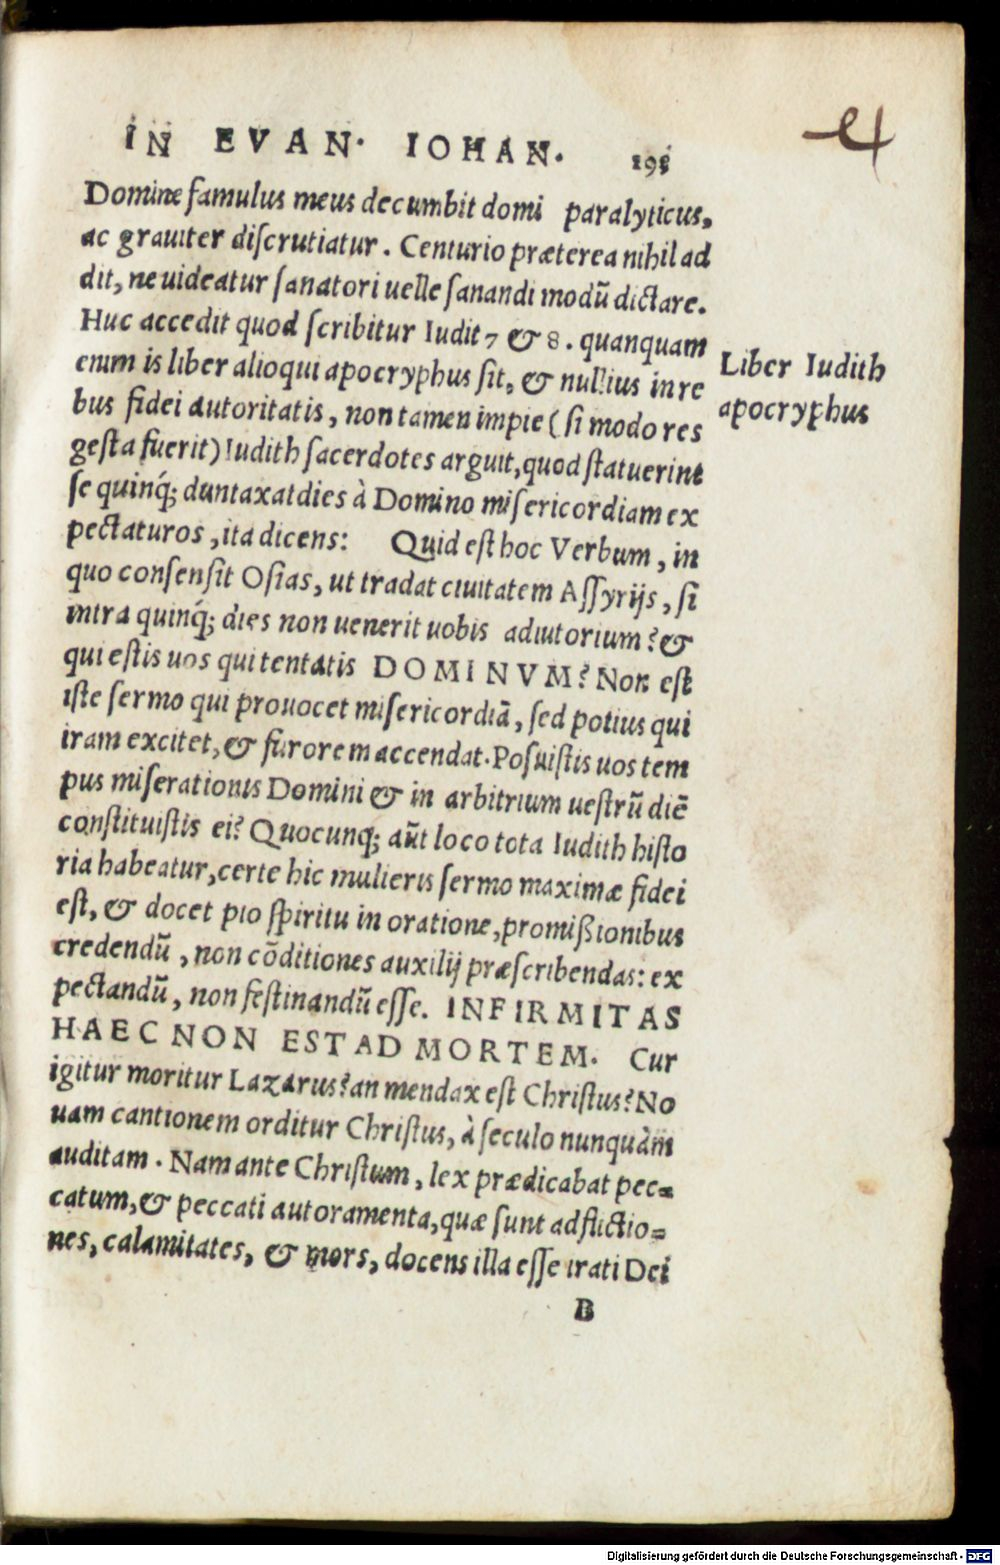 IN EVAN. IOHAN. 195
Domine famulus meus decumbit domi paralyticus,
ac grauiter discrutiatur. Centurio præterea nihil ad
dit, ne uideatur sanatori uelle sanandi modū dictare.
Huc accedit quod scribitur Iudit 7 & 8. quanquam
enim is liber alioqui apocryphus sit, & nullius in re
bus fidei autoritatis, non tamen impie (si modo res
gesta fuerit) Iudith sacerdotes arguit, quod statuerint
se quinq; duntaxat dies à Domino misericordiam ex
pectaturos, ita dicens: Quid est hoc Verbum, in
quo consensit Osias, ut tradat ciuitatem Assyrijs, si
intra quinq; dies non uenerit uobis adiutorium? &
qui estis uos qui tentatis DOMINVM? Non est
iste sermo qui prouocet misericordiā, sed potius qui
iram excitet, & furorem accendat. Posuistis uos tem
pus miserationis Domini & in arbitrium uestrū diē
constituistis ei? Quocunq; aūt loco tota Iudith histo
ria habeatur, certe hic mulieris sermo maximæ fidei
est, & docet pio spiritu in oratione, promißionibus
credendū, non cōditiones auxilij præscribendas: ex
pectandū, non festinandū esse. INFIRMITAS
HAEC NON EST AD MORTEM. Cur
igitur moritur Lazarus? an mendax est Christus? No
uam cantionem orditur Christus, à seculo nunquàm
auditam. Nam ante Christum, lex prædicabat pec=
catum, & peccati autoramenta, quæ sunt adflictio=
nes, calamitates, & mors, docens illa esse irati Dei
B
Liber Iudith
apocryphus
Digitalisierung gefördert durch die Deutsche Forschungsgemeinschaft - DFG